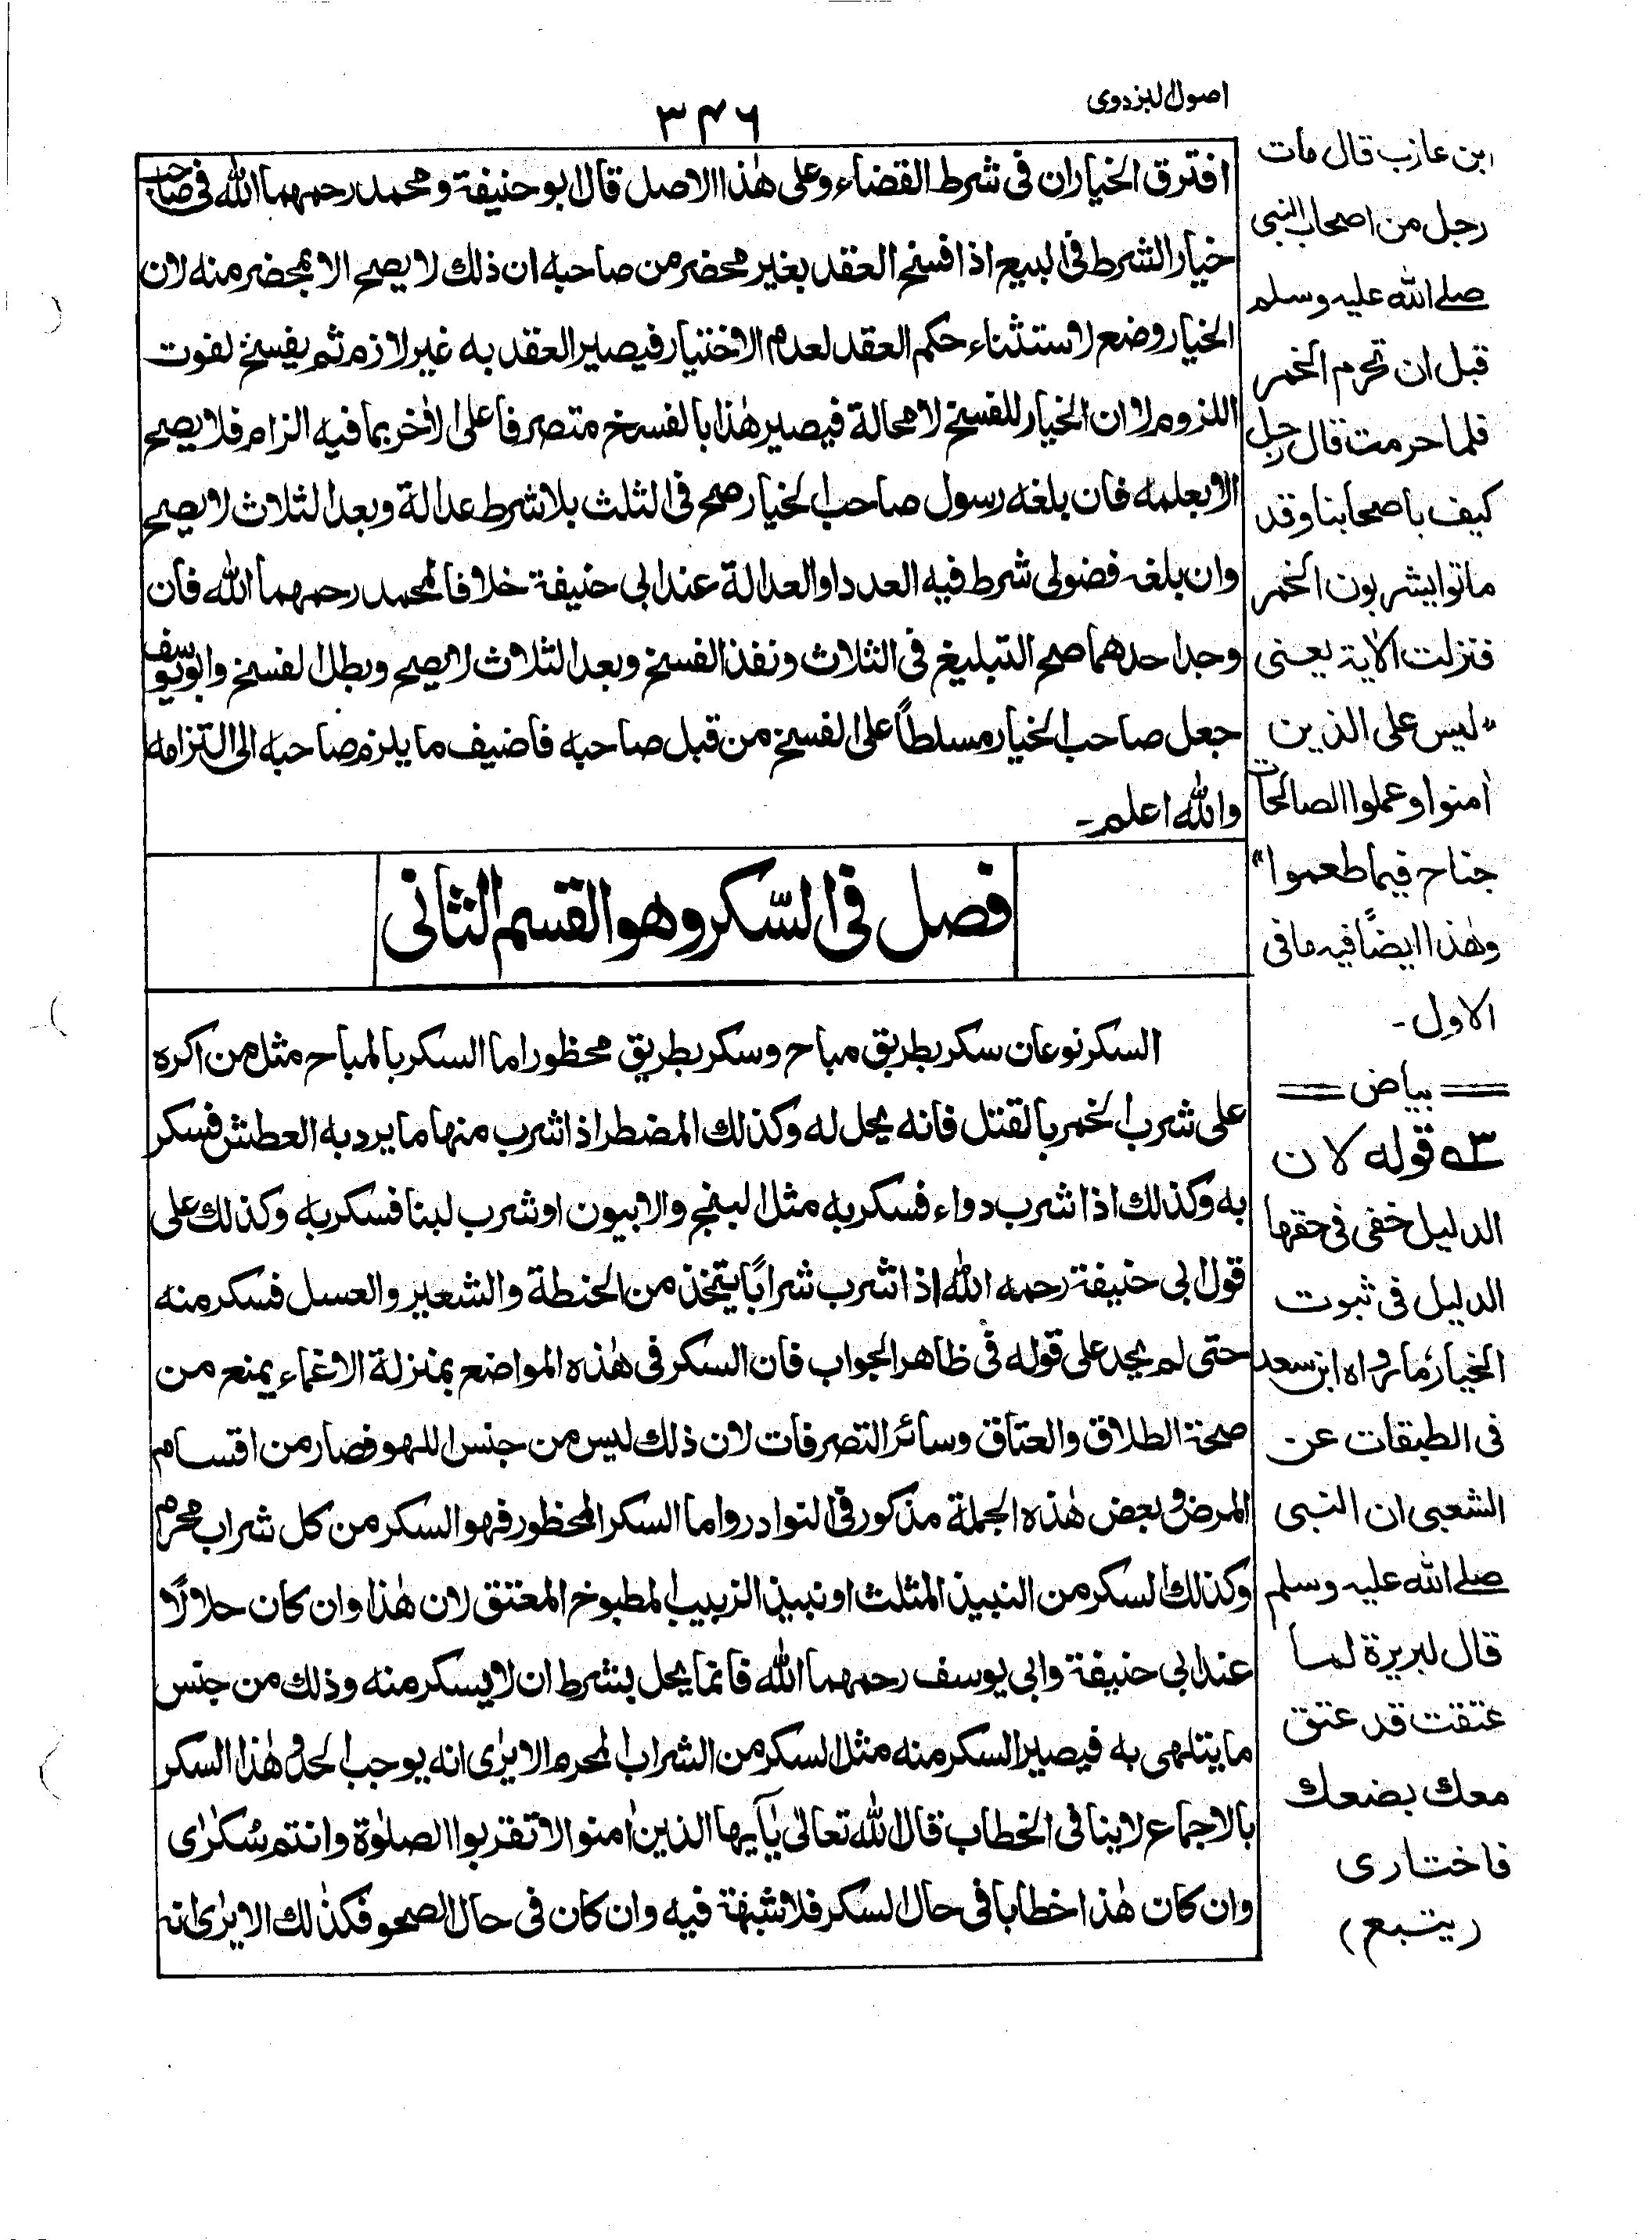 اصول البزدوی
۳۴۶
افترق الخياران فى شرط القضاء وعلى هٰذا الاصل قال ابوحنيفة و محمد رحمهما الله فى صاحب
خيار الشرط فى البيع اذا فسخ العقد بغير محضر من صاحبه ان ذلك لا يصح الا بمحضر منه لان
الخيار وضع لاستثناء حكم العقد لعدم الاختيار فيصير العقد به غير لازم ثم يفسخ لفوت
اللزوم لا ان الخيار للفسخ لا محالة فيصير هٰذا بالفسخ متصرفا على الاٰخر بما فيه الزام فلا يصح
الا بعلمه فان بلغه رسول صاحب الخيار صح فى الثلث بلا شرط عدالة وبعد الثلاث لا يصح
وان بلغه فضولى شرط فيه العدد او العدالة عند ابى حنيفة خلافا لمحمد رحمهما الله فان
وجد احدهما صح التبليغ فى الثلاث ونفذ الفسخ وبعد الثلاث لا يصح وبطل الفسخ وابويوسف
جعل صاحب الخيار مسلطاً على الفسخ من قبل صاحبه فاضيف ما يلزم صاحبه الى التزامه
والله اعلم۔
فصل فى السّكر وهو القسم الثانى
السكر نوعان سكر بطريق مباح وسكر بطريق محظور اما السكر بالمباح مثل من اكره
على شرب الخمر بالقتل فانه يحل له وكذلك المضطر اذا شرب منها ما يرد به العطش فسكر
به وكذلك اذا شرب دواء فسكر به مثل البنج والابيون او شرب لبنا فسكر به وكذلك على
قول ابى حنيفة رحمه الله اذا شرب شراباً يتخذ من الحنطة والشعير والعسل فسكر منه
حتى لم يحد على قوله فى ظاهر الجواب فان السكر فى هٰذه المواضع بمنزلة الاغماء يمنع من
صحة الطلاق والعتاق وسائر التصرفات لان ذلك ليس من جنس اللهو فصار من اقسام
المرض وبعض هٰذه الجملة مذكور فى النوادر واما السكر المحظور فهو السكر من كل شراب محرم
وكذلك السكر من النبيذ المثلث او نبيذ الزبيب المطبوخ المعتق لان هٰذا وان كان حلالًا
عند ابى حنيفة وابى يوسف رحمهما الله فانما يحل بشرط ان لا يسكر منه وذلك من جنس
ما يتلهى به فيصير السكر منه مثل السكر من الشراب المحرم الا يرٰى انه يوجب الحد وهٰذا السكر
بالاجماع لا ينافى الخطاب قال الله تعالىٰ يٰاَيها الذين اٰمنوا لا تقربوا الصلوٰة وانتم سُكرٰى
وان كان هٰذا خطابا فى حال السكر فلا شبهة فيه وان كان فى حال الصحو فكذٰلك الا يرٰى انه
ابن عازب قال مات
رجل من اصحاب النبى
صلے الله عليه وسلم
قبل ان تحرم الخمر
فلما حرمت قال رجل
كيف باصحابنا وقد
ماتوا يشربون الخمر
فنزلت الاٰية يعنى
"ليس على الذين
اٰمنوا وعملوا الصالحات
جناح فيما طعموا"
وهٰذا ايضًا فيه ما فى
الاول۔
== بياض ==
۳ه قوله لان
الدليل خفى فى حقها
الدليل فى ثبوت
الخيار، ما رواه ابن سعد
فى الطبقات عن
الشعبى ان النبى
صلے الله عليه وسلم
قال لبريرة لما
عتقت قد عتق
معك بضعك
فاختارى
(يتبع)